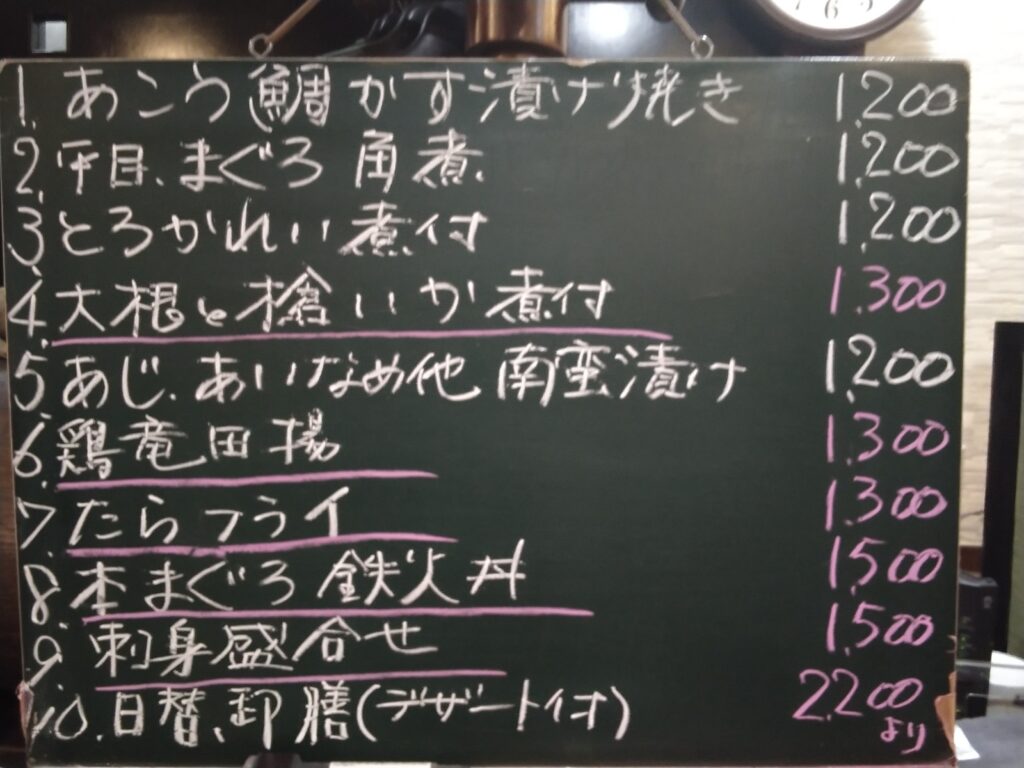 6
1. あこう鯛かす漬け焼き 1,200
2. 平目、まぐろ 角煮 1,200
3. とろかれい煮付 1,200
4. 大根と槍いか煮付 1,300
5. あじ、あいなめ他 南蛮漬け 1,200
6. 鶏竜田揚 1,300
7. たらフライ 1,300
8. 本まぐろ 鉄火丼 1,500
9. 刺身盛合せ 1,500
10. 日替、卸膳(デザート付) 2,200
より